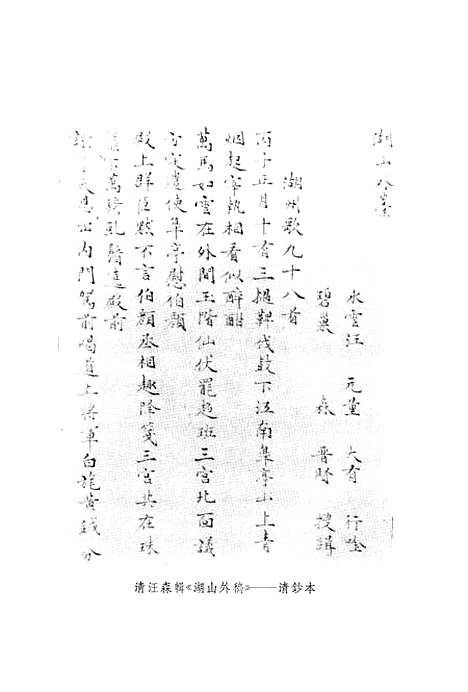 湖山外稾
水雲汪 元量 大有 行唫
碧巢 森 晋賢 搜輯
湖州歌九十八首
丙子正月十有三撾鞞伐鼓下江南皐亭山上青
烟起宰執相看似醉酣
萬馬如雲在外間玉階仙仗罷趍班三宮北面議
方定遣使皐亭慰伯顏
殿上羣臣默不言伯顏丞相趣降箋三宮共在珠
簾下萬騎虬鬚遶殿前
謝了天恩出內門駕前喝道上將軍白旄黄鉞分
清汪森輯《湖山外稿》——清鈔本